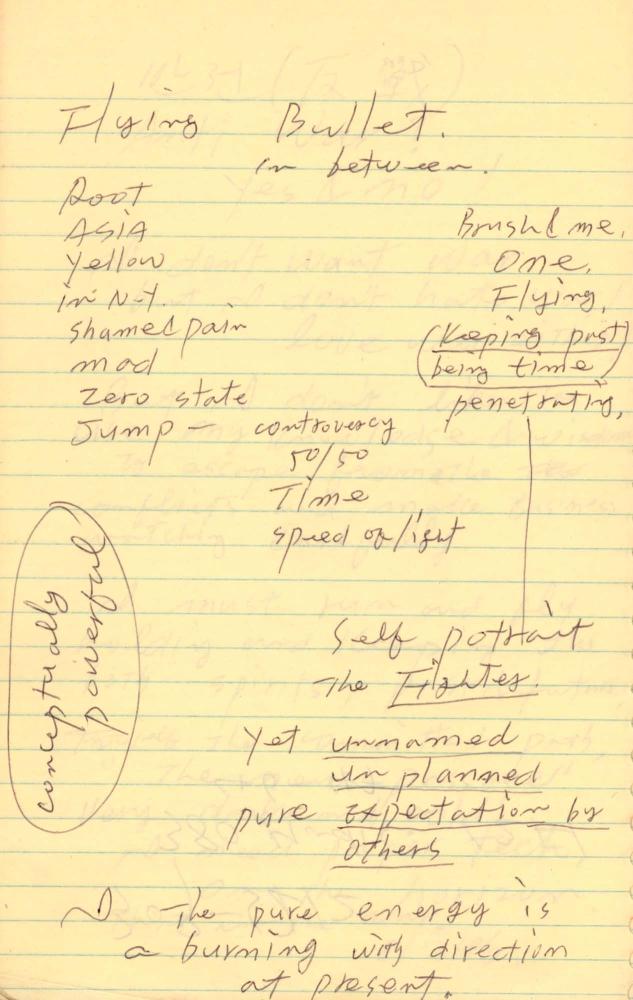 Flying Bullet.
in between.
Root
ASIA
Yellow
in N.Y.
shamed pain
mad
zero state
Jump — controvercy
50/50
Time
speed of light
Brush & me.
One.
Flying,
(Keeping past)
being time
penetrating,
conceptually
powerful
Self potrait
The Fighter.
Yet unnamed
un planned
pure Expectation by
Others
The pure energy is
a burning with direction
at present.